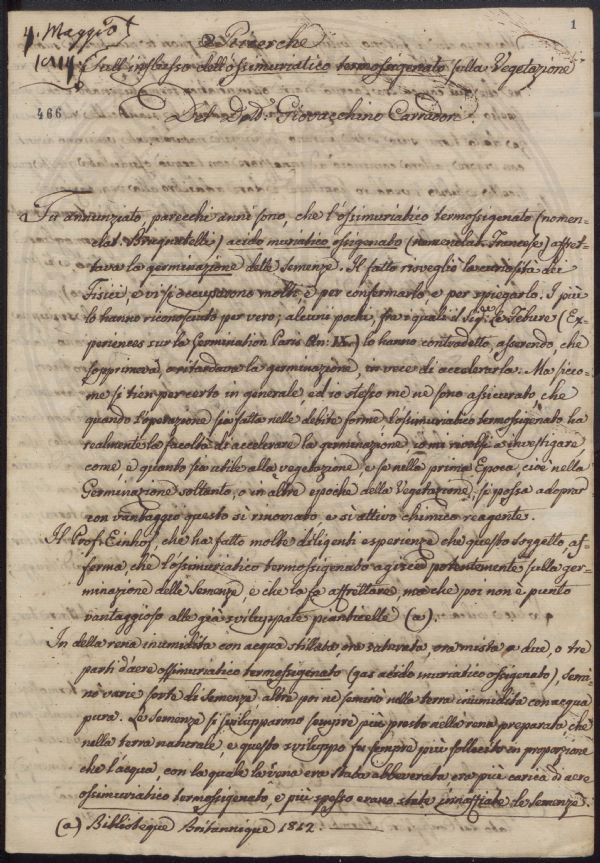 4. Maggio
1
Ricerche
Sull'influsso dell'ossimuriatico termossigenato sulla Vegetazione
466
Del Dott. Giovacchino Carradori
Fu annunziato, parecchi anni sono, che l'ossimuriatico termossigenato (nomen-
clat. Brugnatelli) acido muriatico ossigenato (nomenclat. Francese) affret-
tava la germinazione delle Semenze. Il fatto risvegliò la curiosità dei
Fisici, e vi si occuparono molti e per confermarlo, e per spiegarlo. I più
lo hanno riconosciuto per vero; alcuni pochi, fra i quali il Sig.re Le Febure (Ex-
periences sur la Germination Paris An. IX.) lo hanno contradetto, asserendo, che
sopprimeva, o ritardava la germinazione, in vece di accelerarla. Ma sicco-
me si tien per certo in generale, ed io stesso me ne sono assicurato, che
quando l'operazione sia fatta nelle debite forme l'ossimuriatico termossigenato ha
realmente la facoltà di accelerare la germinazione io mi rivolsi a investigare
come, e quanto sia utile alla vegetazione, e se nella prima Epoca, cioè nella
Germinazione soltanto, o in altre epoche della Vegetazione, si possa adoprar
con vantaggio questo sì rinomato, e sì attivo chimico reagente.
Il Prof. Einhof, che ha fatto molte diligenti esperienze che questo soggetto, af-
ferma, che l'ossimuriatico termossigenato agisce potentemente sulla ger-
minazione delle Semenze, e che la fa affrettare, ma che poi non è punto
vantaggioso alle già sviluppate pianticelle (a).
In della rena inumidita con acqua stillata ora saturata, ora mista a due, o tre
parti d'aere ossimuriatico termossigenato (gas acido muriatico ossigenato), semi-
nò varie sorte di Semenze altre poi ne seminò nella terra inumidita con acqua
pura. Le Semenze si svilupparono sempre più presto nella rena preparata che
nella terra naturale, e questo sviluppo fu sempre più sollecito in proporzione
che l'acqua, con la quale la rena era stata abbeverata era più carica di aere
ossimuriatico termossigenato, e più spesso erano state innaffiate le Semenze.
(a) Biblioteque Britannique 1812.